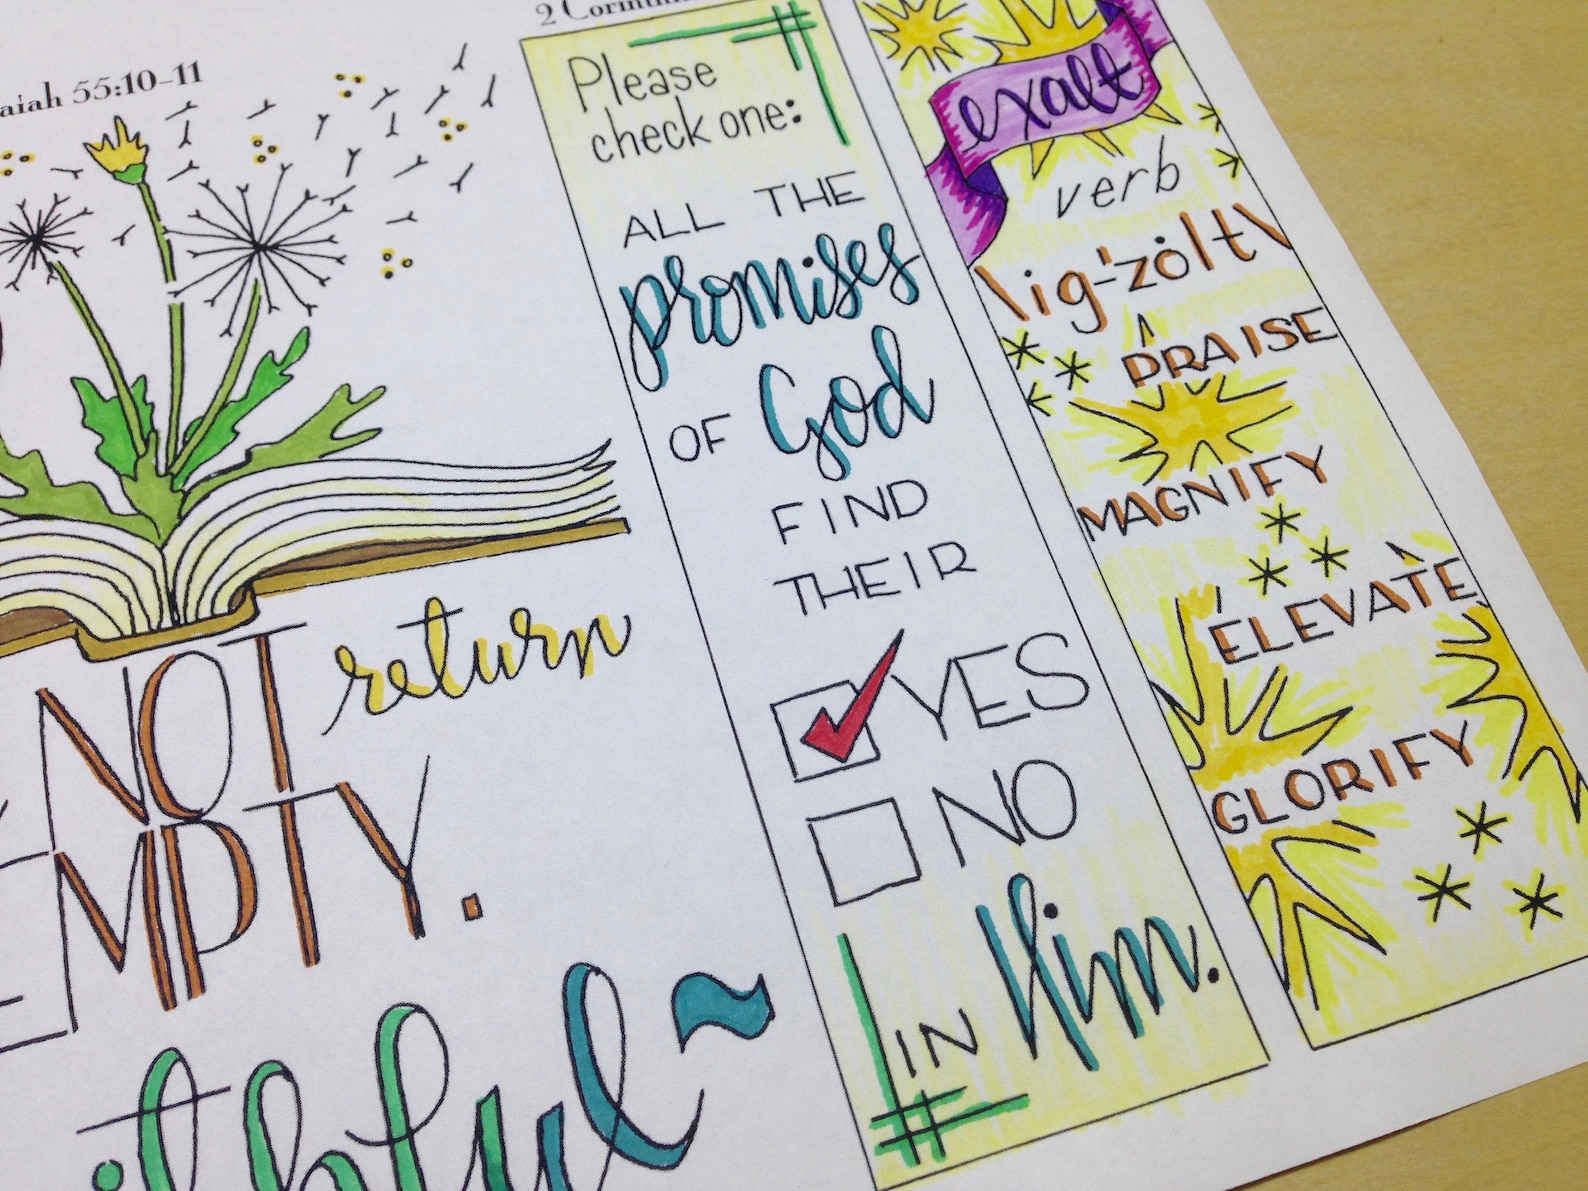 55:10-11
NOT return
EMPTY.
2
Please
check one:
ALL THE
promises
OF God
FIND
THEIR
YES
NO
IN Him.
exalt
verb
\ig-'zȯlt\
PRAISE
MAGNIFY
ELEVATE
GLORIFY